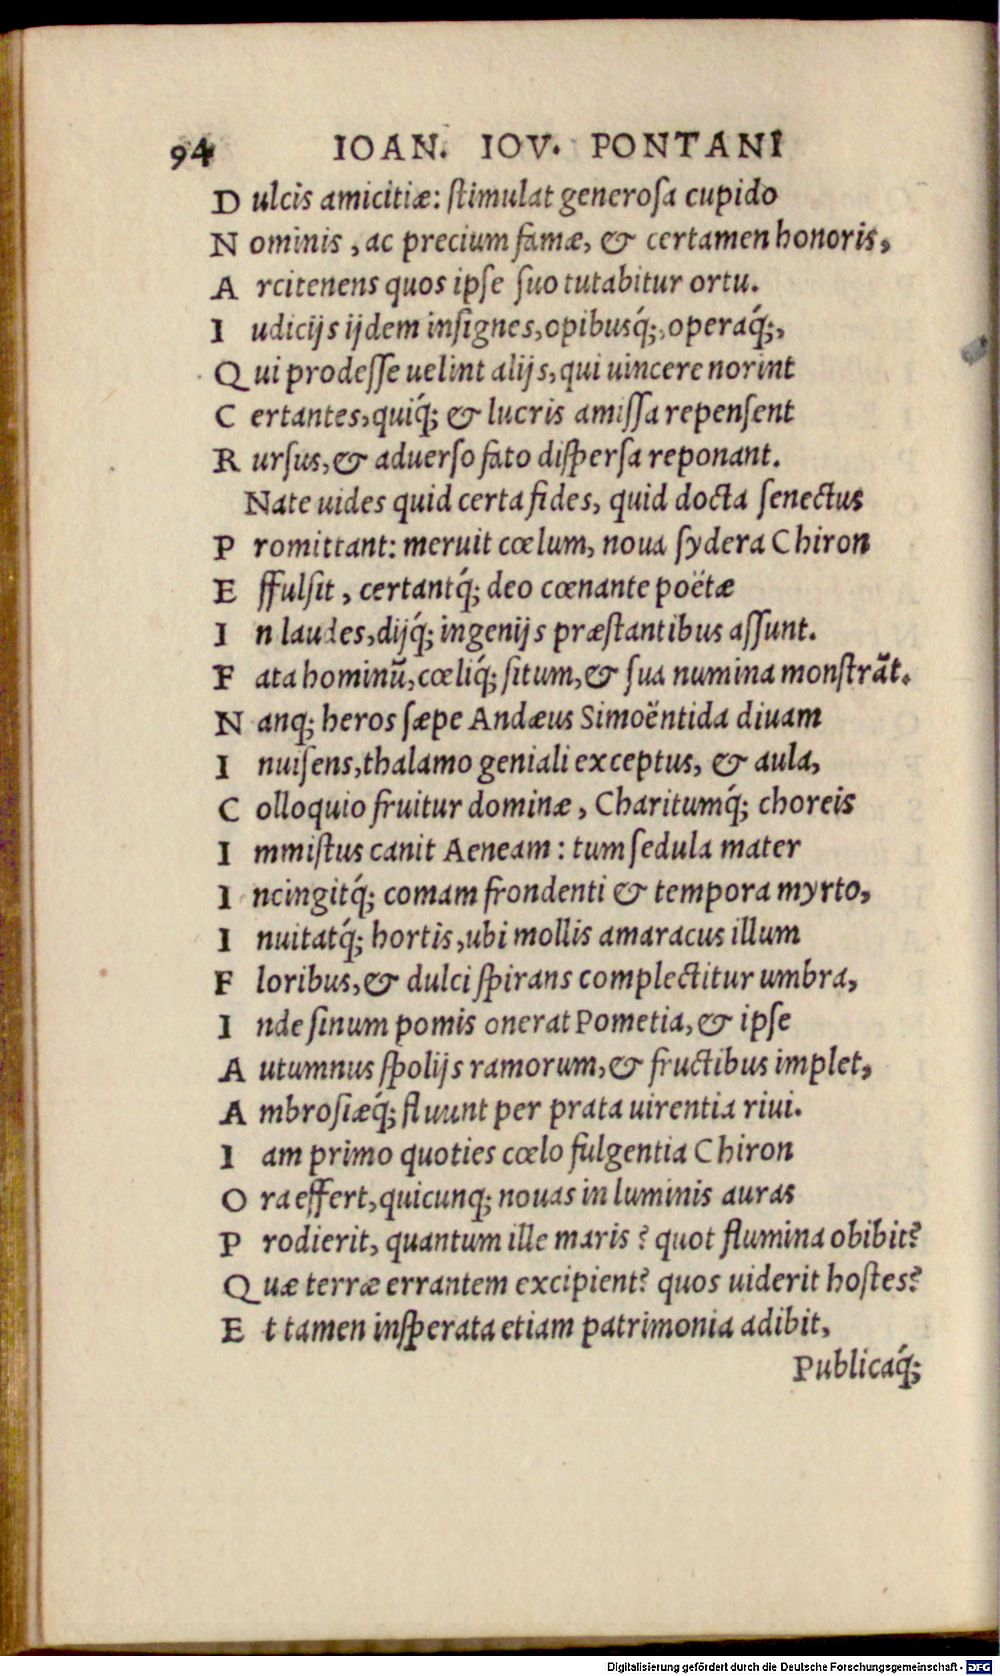 94 IOAN. IOV. PONTANI
D ulcis amicitiæ: ſtimulat generoſa cupido
N ominis, ac precium famæ, & certamen honoris,
A rcitenens quos ipſe ſuo tutabitur ortu.
I udicijs ijdem inſignes, opibusq́;, operaq́;,
Q ui prodeſſe uelint alijs, qui uincere norint
C ertantes, quiq́; & lucris amiſſa repenſent
R urſus, & aduerſo fato diſperſa reponant.
Nate uides quid certa fides, quid docta ſenectus
P romittant: meruit cœlum, noua ſydera Chiron
E ffulſit, certantq́; deo cœnante poëtæ
I n laudes, dijq́; ingenijs præſtantibus aſſunt.
F ata hominũ, cœliq́; ſitum, & ſua numina monſtrãt.
N anq; heros ſæpe Andæus Simoëntida diuam
I nuiſens, thalamo geniali exceptus, & aula,
C olloquio fruitur dominæ, Charitumq́; choreis
I mmiſtus canit Aeneam: tum ſedula mater
I ncingitq́; comam frondenti & tempora myrto,
I nuitatq́; hortis, ubi mollis amaracus illum
F loribus, & dulci ſpirans complectitur umbra,
I nde ſinum pomis onerat Pometia, & ipſe
A utumnus ſpolijs ramorum, & fructibus implet,
A mbroſiæq́; fluunt per prata uirentia riui.
I am primo quoties cœlo fulgentia Chiron
O ra effert, quicunq; nouas in luminis auras
P rodierit, quantum ille maris? quot flumina obibit?
Q uæ terræ errantem excipient? quos uiderit hoſtes?
E t tamen inſperata etiam patrimonia adibit,
Publicaq́;
Digitalisierung gefördert durch die Deutsche Forschungsgemeinschaft - DFG